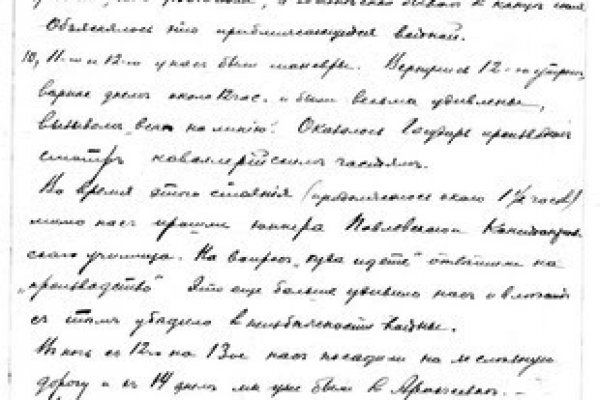 Объяснялось это приближающейся войной.
10, 11-го и 12-го у нас были маневры. Вернулись 12-го утром,
вернее днем около 12 час. и были весьма удивлены,
вызовом „всех на линию". Оказалось Государь производил
смотр кавалерийским частям.
Во время этого стояния (продолжалось около 1 1/2 часов)
мимо нас прошли юнкера Павловского
ского училища. На вопрос „куда идете" отвечали на
„производство" Это еще больше удивило нас и
с тем убедило в неизбежности войны.
В ночь с 12го на 13ое нас посадили на железную
дорогу и 14 днем мы уже были в